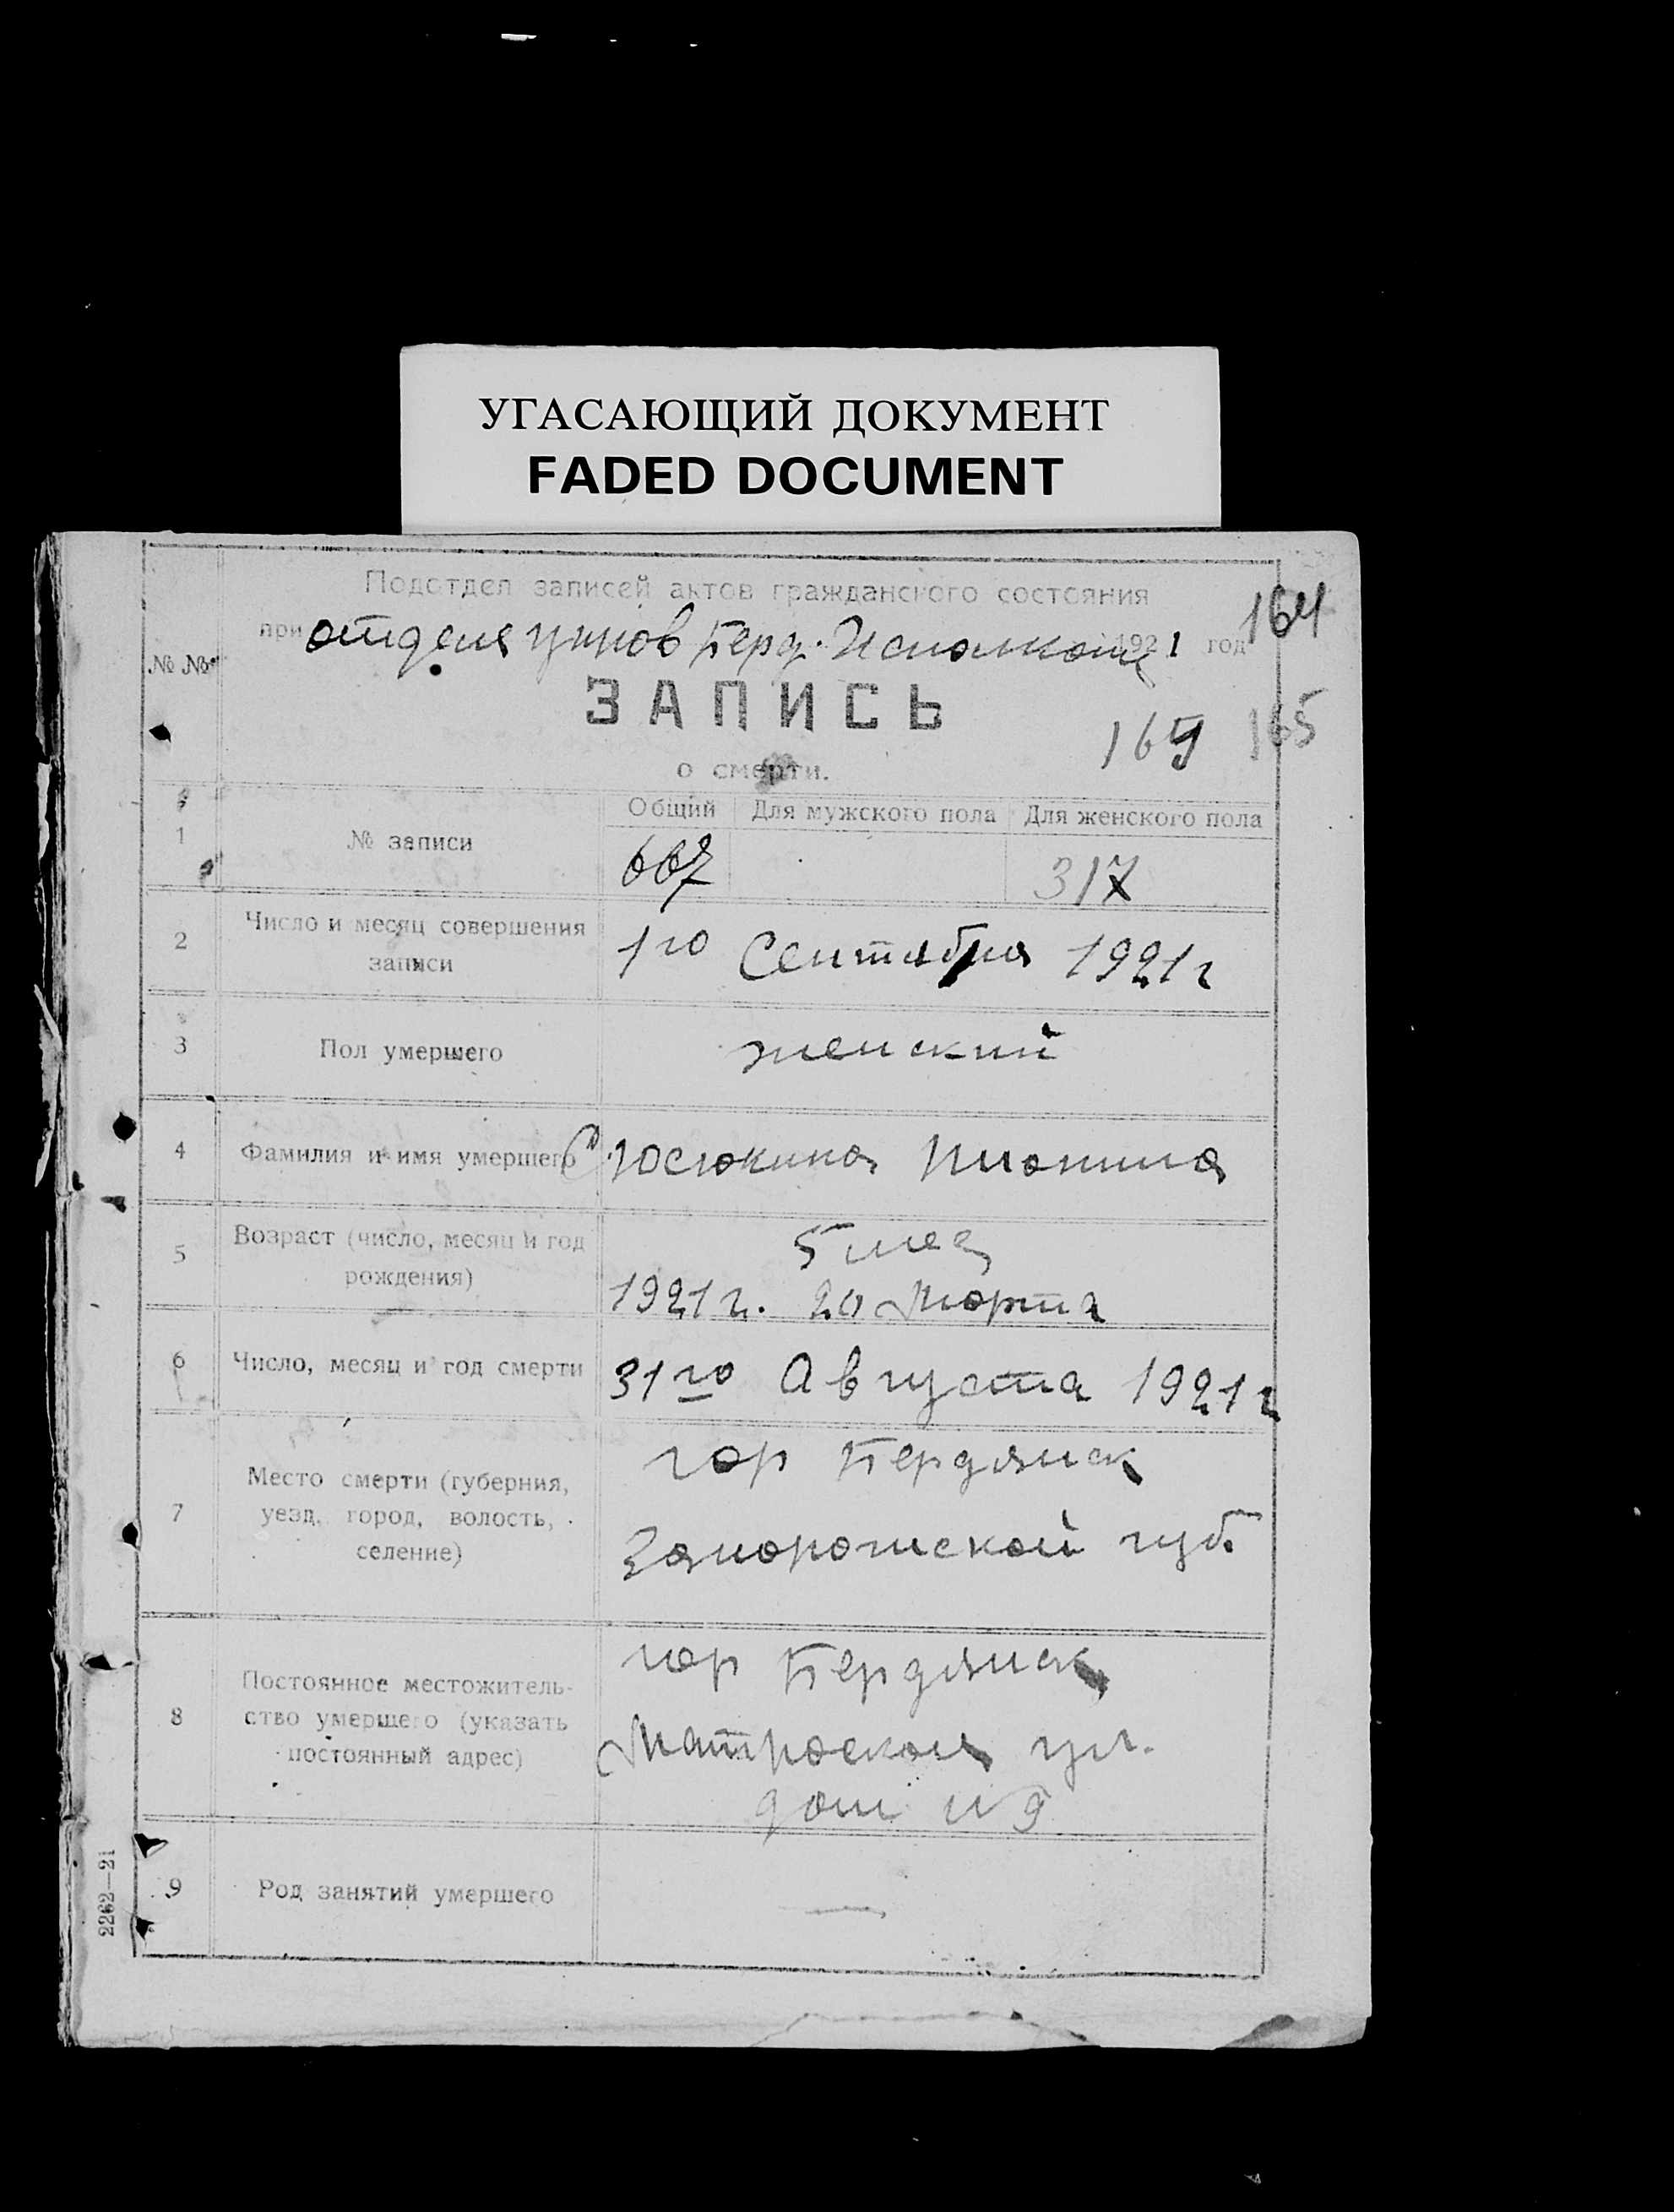 УГАСАЮЩИЙ ДОКУМЕНТ
FADED DOCUMENT
Подотдел записей актов гражданского состояния
164
при отделе Берд. Исполкома 1921 год
№ №
ЗАПИСЬ
164 165
о смерти.
Общий Для мужского пола Для женского пола
1 № записи 667 317
2 Число и месяц совершения
записи 1го Сентября 1921 г
3 Пол умершего женский
4 Фамилия и имя умершего
5 Возраст (число, месяц и год 5 мес
рождения) 1921 г. 20 Марта
6 Число, месяц и год смерти 31го Августа 1921 г
7 Место смерти (губерния, гор Бердянск
уезд, город, волость,
селение) Запорожской губ
8 Постоянное местожитель- гор Бердянск
ство умершего (указать
постоянный адрес) Матросская ул.
дом № 9
9 Род занятий умершего —
2262—21